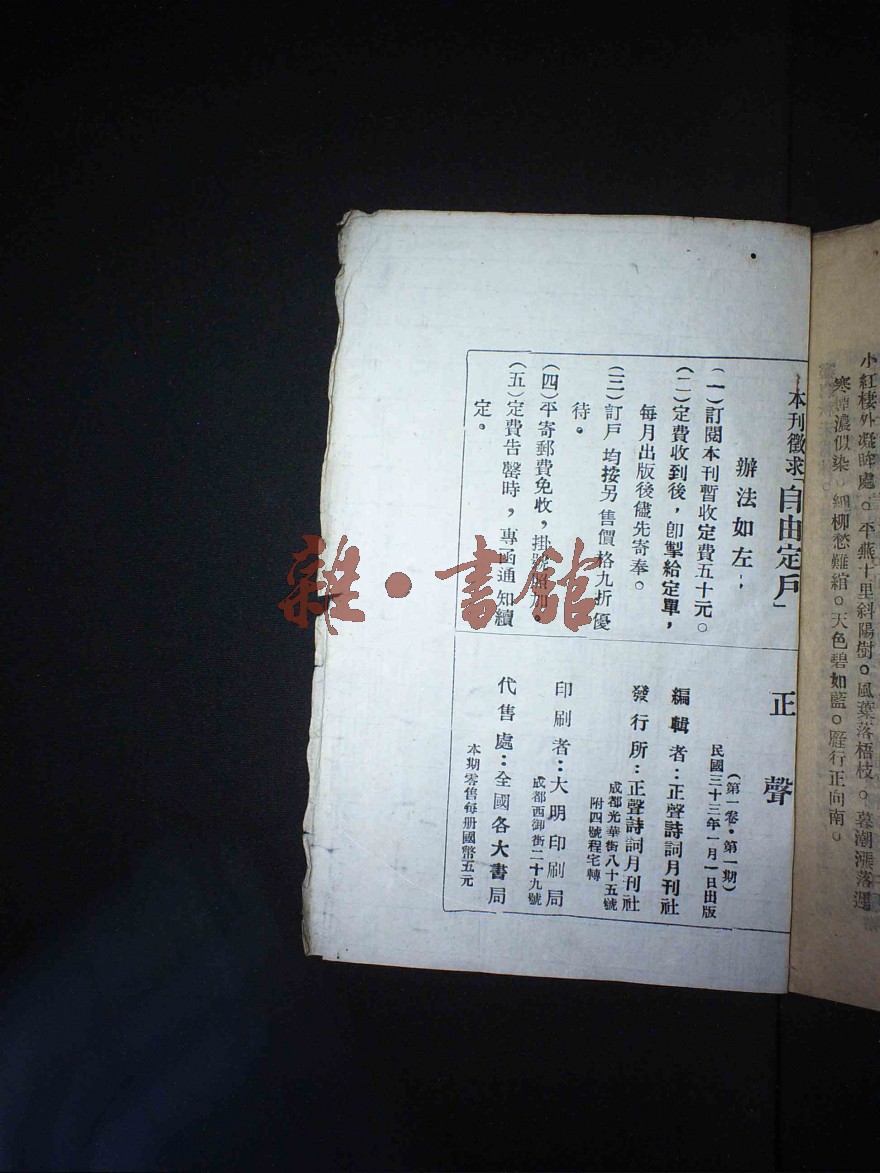 小紅樓外凝眸處。平燕十里斜陽樹。風葉落梧枝。暮潮漲落遲
寒 濃似染。細柳愁難綰。天色碧如藍。雁行正向南。
本刊徵求「自由定戶」
辦法如左：
(一)訂閱本刊暫收定費五十元。
(二)定費收到後，卽掣給定單，
每月出版後儘先寄奉。
(三)訂戶均按另售價格九折優
待。
(四)平寄郵費免收，掛號照加。
(五)定費告罄時，專函通知續
定。
正聲
(第一卷·第一期)
民國三十三年一月一日出版
編輯者：正聲詩詞月刊社
發行所：正聲詩詞月刊社
成都光華街八十五號
附四號程宅轉
印刷者：大明印刷局
成都西御街二十九號
代售處：全國各大書局
本期零售每册國幣五元
雜·書館